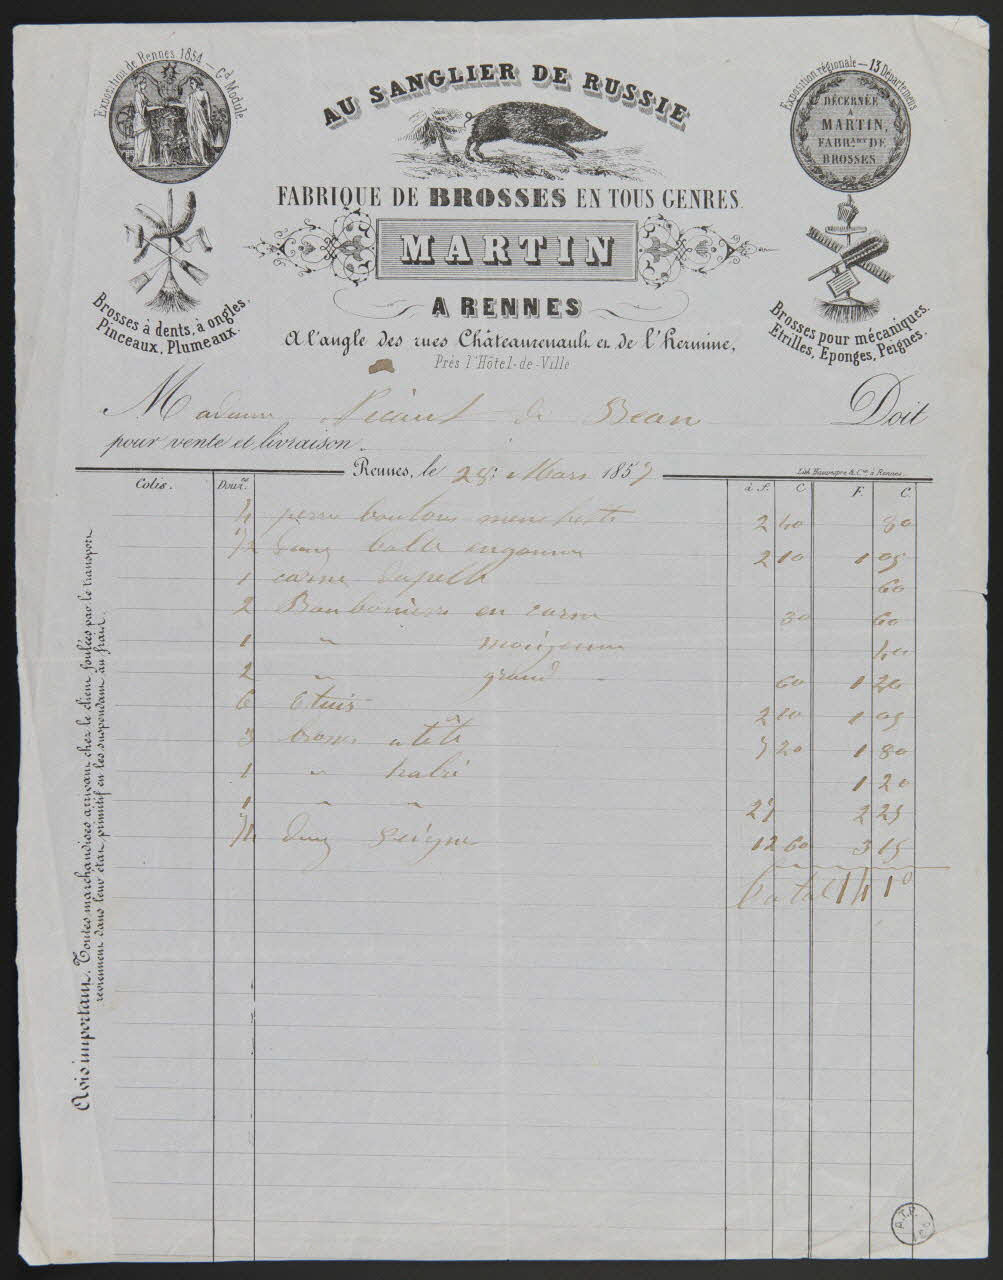 Exposition de Rennes 1854 – Gd Module
AU SANGLIER DE RUSSIE
Exposition régionale – 13 Départements
DÉCERNÉE
A
MARTIN,
FABR.ANT DE
BROSSES
FABRIQUE DE BROSSES EN TOUS GENRES.
MARTIN
A RENNES
A l'angle des rues Châteaurenault et de l'Hermine,
Près l'Hôtel-de-Ville
Brosses à dents, à ongles.
Pinceaux, Plumeaux.
Brosses pour mécaniques,
Etrilles, Eponges, Peignes.
Madame de Bean Doit
pour vente et livraison
Rennes, le 28 Mars 1857
Lith. & Cie, à Rennes.
Colis. Douz.nes à f. C. F. C.
1/4 2 40 80
1/2 2 10 1 05
1 60
2 en corne 30 60
1 " 40
2 " grand 60 1 20
6 Etuis 2 10 1 05
3 brosses a tête 20 1 80
1 " 1 20
1 " " 27 2 25
1/4 douz Peigne 12 60 3 15
total 14 10
Avis important. Toutes marchandises arrivant chez le client foulées par le transport
reviennent dans leur état primitif en les suspendant au frais.
A.T.P.